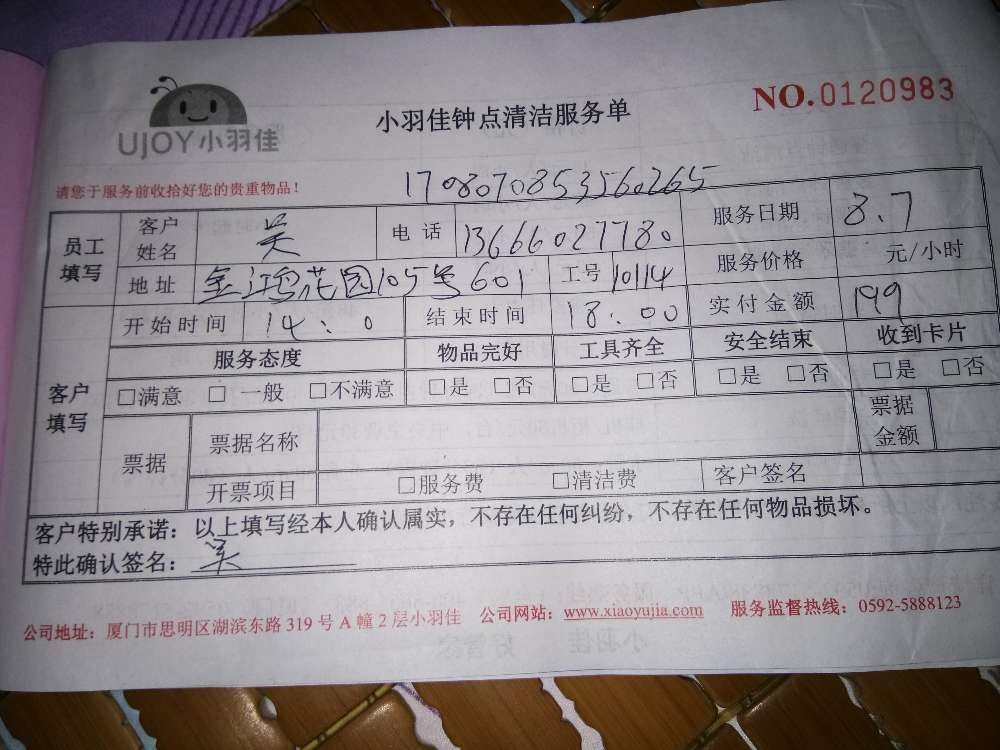 UJOY小羽佳
小羽佳钟点清洁服务单
NO.0120983
请您于服务前收拾好您的贵重物品！
1708070853560265
员工填写 客户姓名 吴 电话 13666027780 服务日期 8.7
地址 金鸿花园105号601 工号 10114 服务价格 元/小时
客户填写 开始时间 14:0 结束时间 18:00 实付金额 199
服务态度 物品完好 工具齐全 安全结束 收到卡片
□满意 □一般 □不满意 □是 □否 □是 □否 □是 □否 □是 □否
票据 票据名称 票据金额
开票项目 □服务费 □清洁费 客户签名
客户特别承诺：以上填写经本人确认属实，不存在任何纠纷，不存在任何物品损坏。
特此确认签名：吴
公司地址：厦门市思明区湖滨东路319号A幢2层小羽佳 公司网站：www.xiaoyujia.com 服务监督热线：0592-5888123